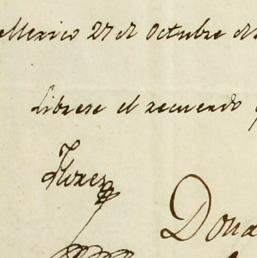 Mexico 27 de Octubre de
Librese el recuerdo
Flores
Dona